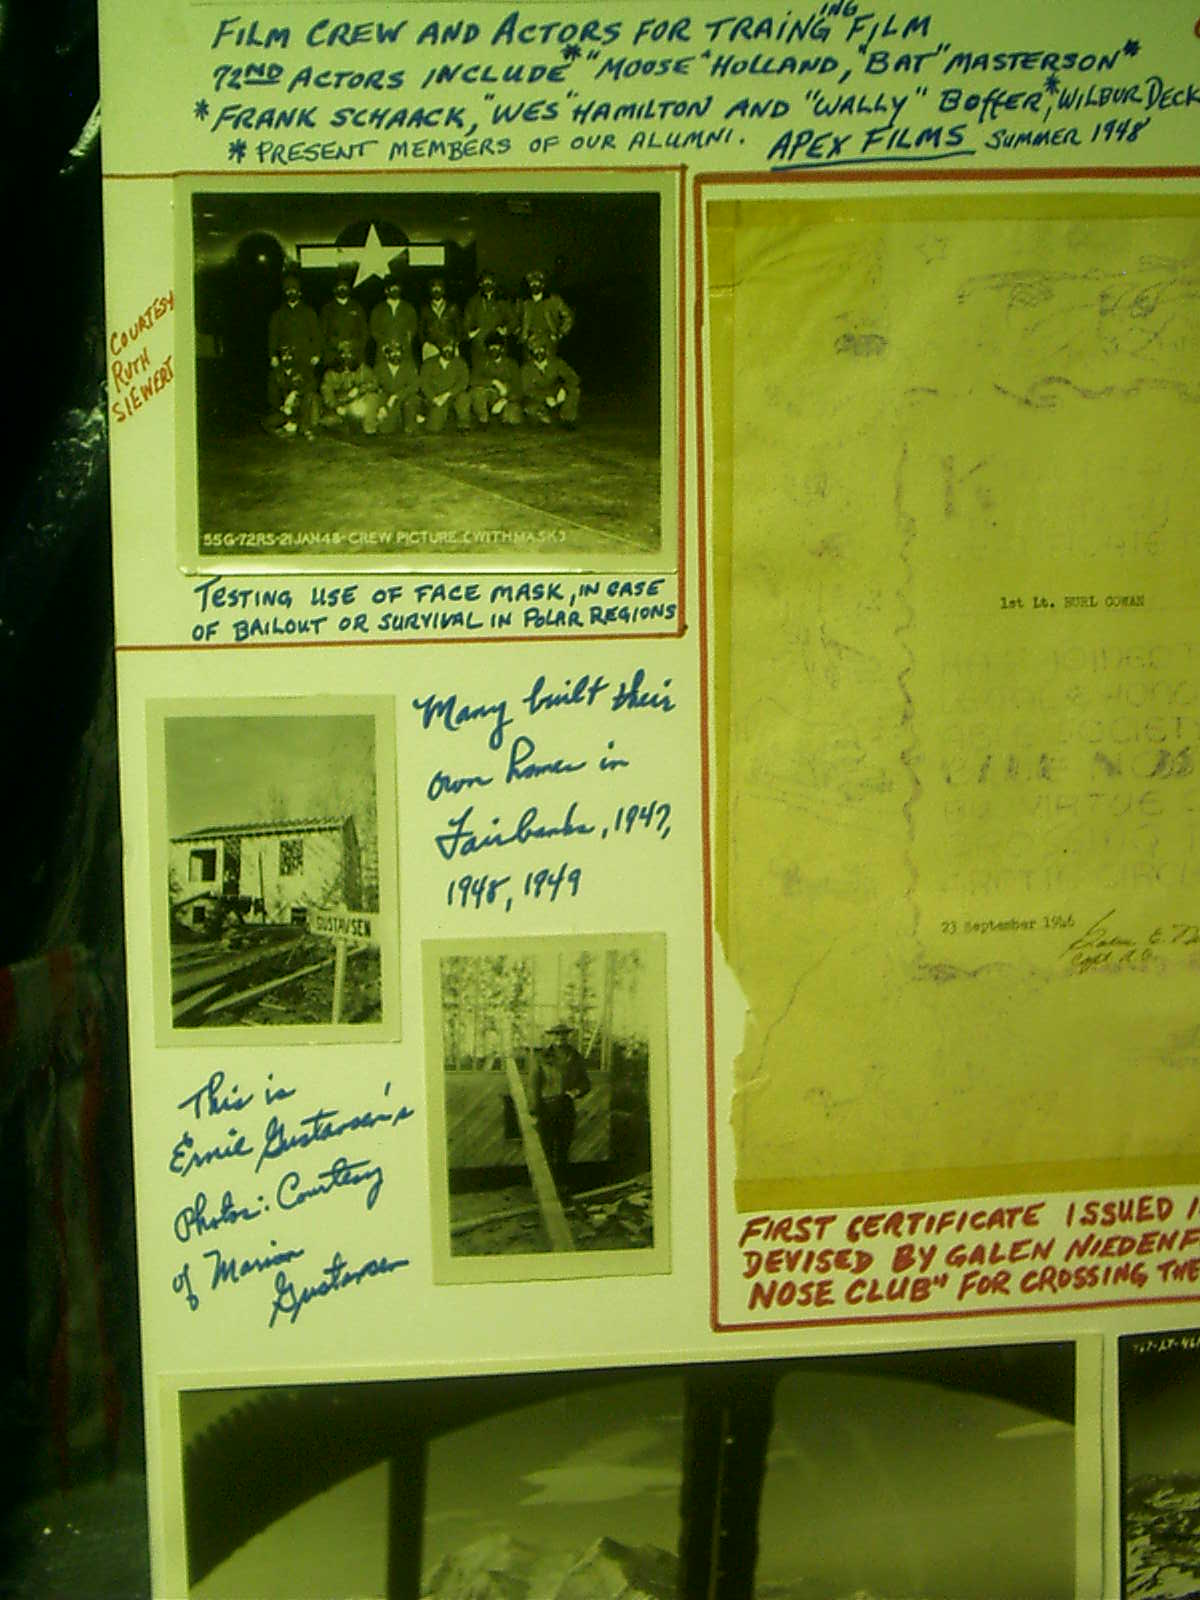 FILM CREW AND ACTORS FOR TRAINGING FILM
72ND ACTORS INCLUDE *"MOOSE" HOLLAND, "BAT" MASTERSON*
*FRANK SCHAACK, "WES" HAMILTON AND "WALLY" BOFFER,* WILBUR DECK
* PRESENT MEMBERS OF OUR ALUMNI. APEX FILMS SUMMER 1948
COURTESY
RUTH
SIEWERT
55G-72RS-21JAN48-CREW PICTURE (WITH MASK)
TESTING USE OF FACE MASK, IN CASE
OF BAILOUT OR SURVIVAL IN POLAR REGIONS
Many built their
own homes in
Fairbanks, 1947,
1948, 1949
GUSTAVSEN
This is
Ernie Gustavsen's
Photos: Courtesy
of Marion
Gustavsen
1st Lt. BURL COWAN
HAS JOINED T
SOCIETY
BY VIRTUE
23 September 1946
FIRST CERTIFICATE ISSUED
DEVISED BY GALEN NIEDENF
NOSE CLUB" FOR CROSSING THE